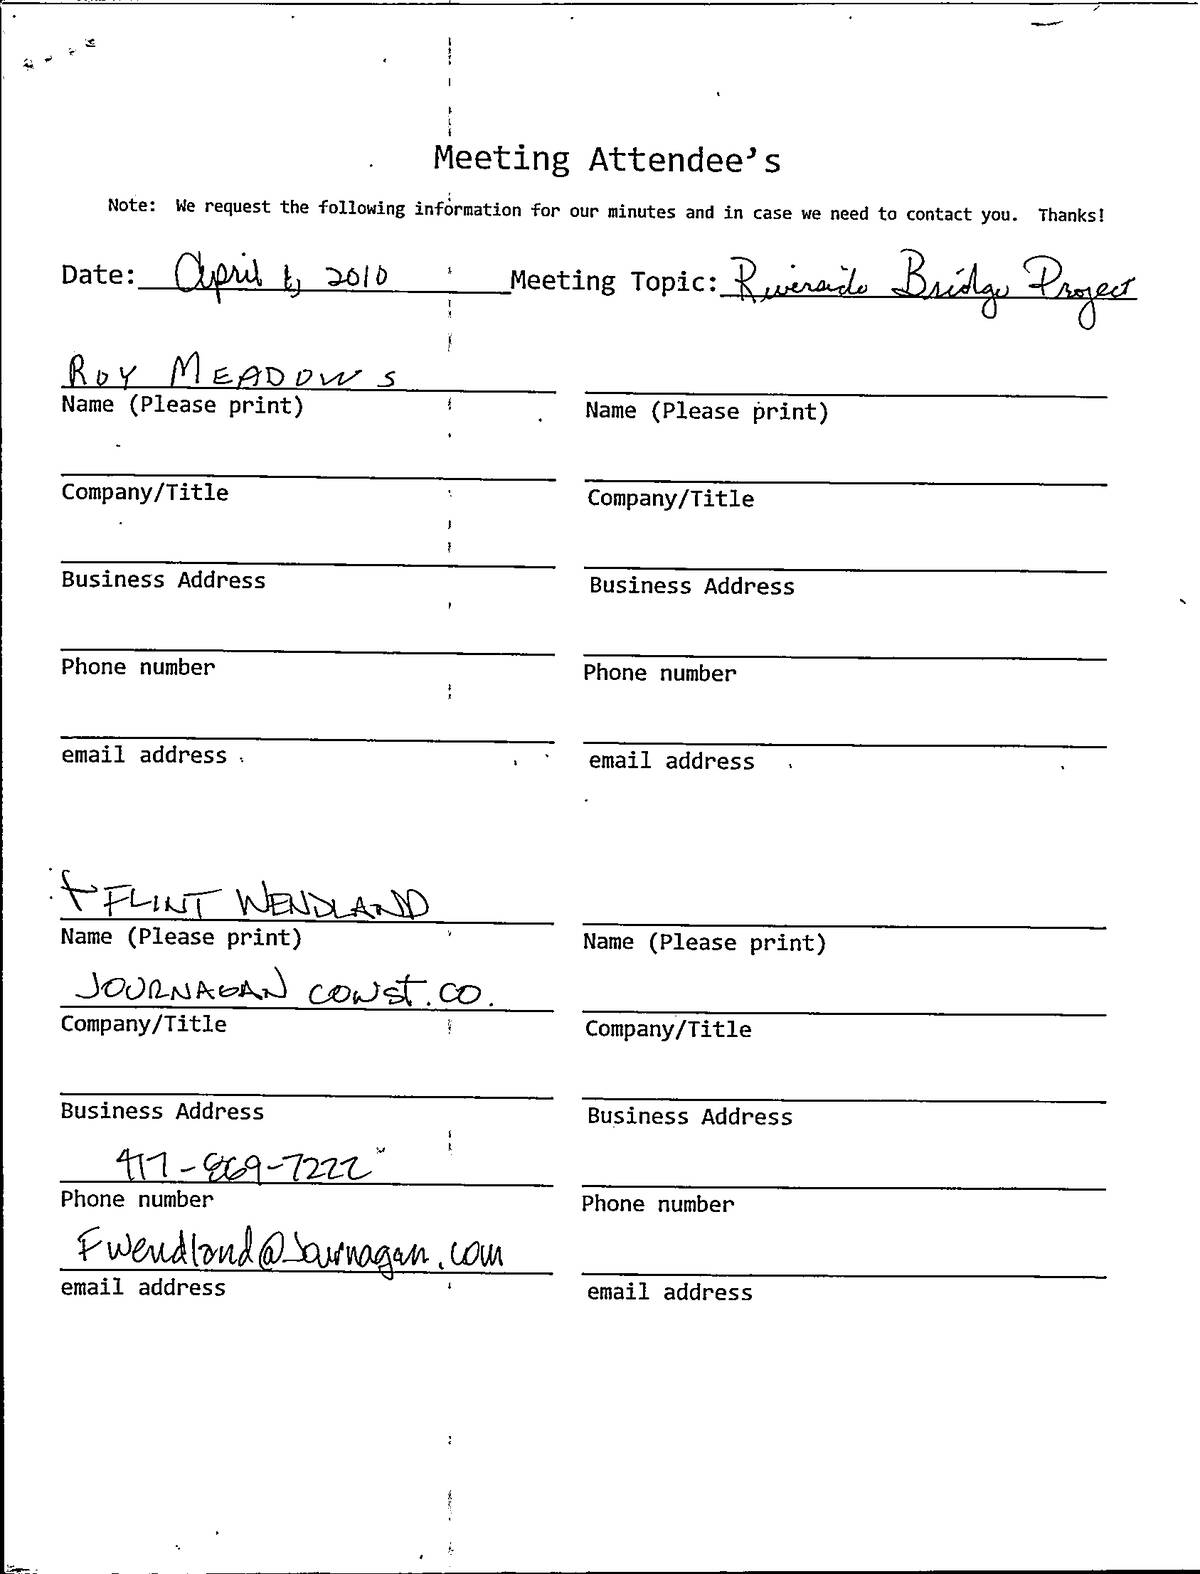 Meeting Attendee's
Note: We request the following information for our minutes and in case we need to contact you. Thanks!
Date: April 6, 2010 Meeting Topic: Riverside Bridge Project
ROY MEADOWS
Name (Please print) Name (Please print)
Company/Title Company/Title
Business Address Business Address
Phone number Phone number
email address email address
FLINT WENDLAND
Name (Please print) Name (Please print)
JOURNAGAN CONST. CO.
Company/Title Company/Title
Business Address Business Address
417-869-7222
Phone number Phone number
Fwendland@Journagan.com
email address email address